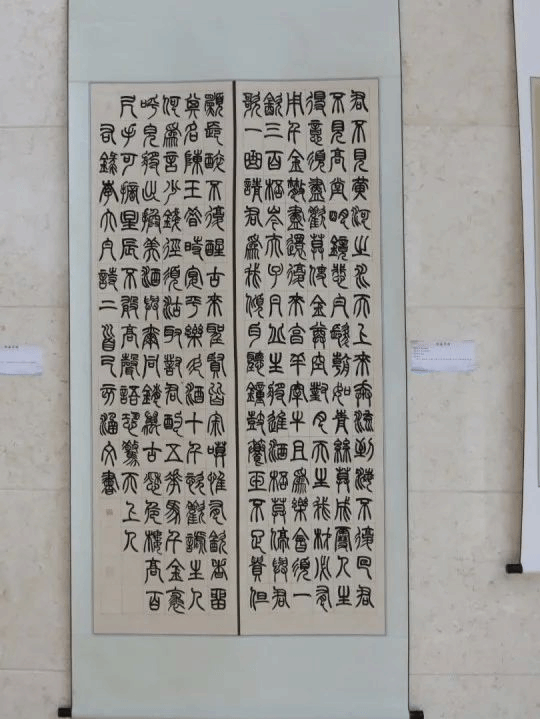 君不見黃河之水天上來奔流到海不復回君
不見高堂明鏡悲白髮朝如青絲暮成雪人生
得意須盡歡莫使金尊空對月天生我材必有
用千金散盡還復來烹羊宰牛且為樂會須一
飲三百杯岑夫子丹丘生將進酒杯莫停與君
歌一曲請君為我傾耳聽鐘鼓饌玉不足貴但
願長醉不復醒古來聖賢皆寂寞惟有飲者留
其名陳王昔時宴平樂斗酒十千恣歡謔主人
何為言少錢徑須沽取對君酌五花馬千金裘
呼兒將出換美酒與爾同銷萬古愁危樓高百
尺手可摘星辰不敢高聲語恐驚天上人
右錄李太白詩二首